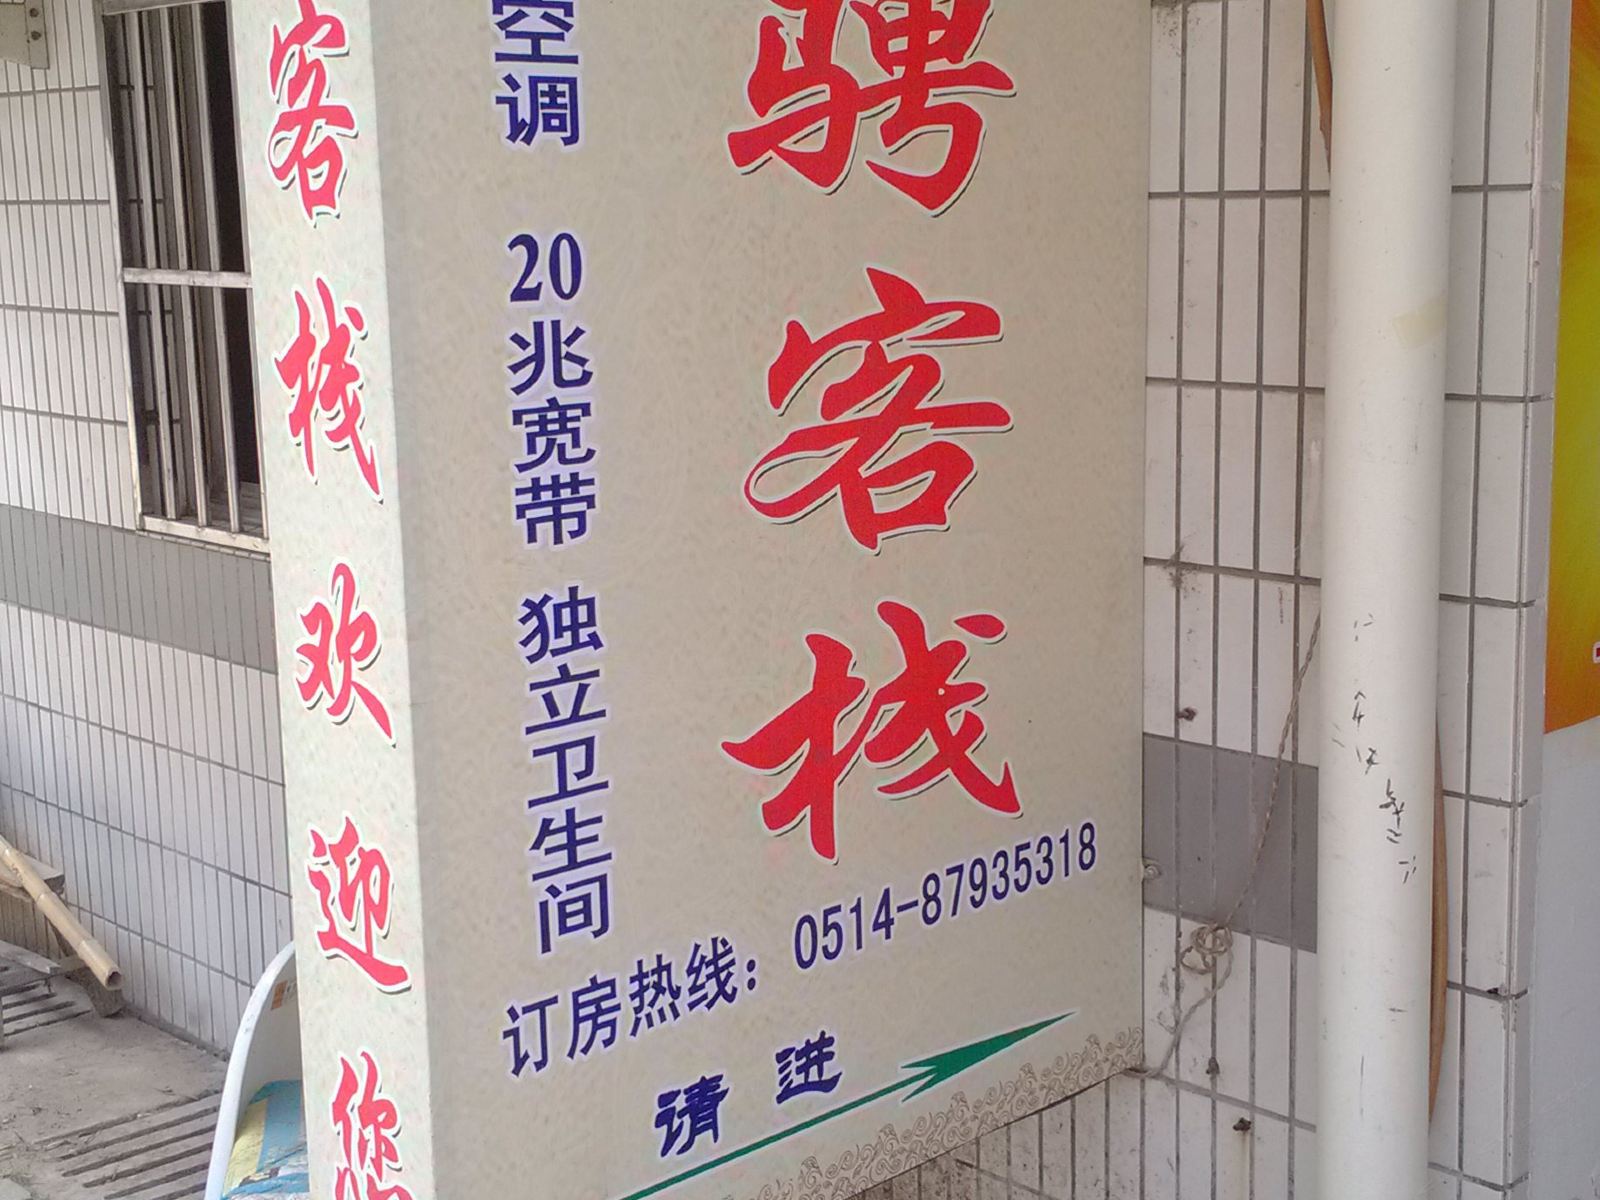 客栈欢迎您
空调 20兆宽带 独立卫生间
骋客栈
订房热线：0514-87935318
请进